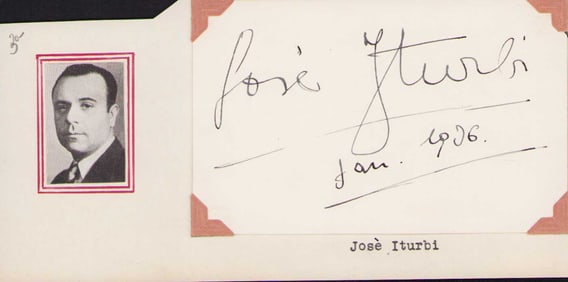 Josè Iturbi
Jan. 1936.
Josè Iturbi